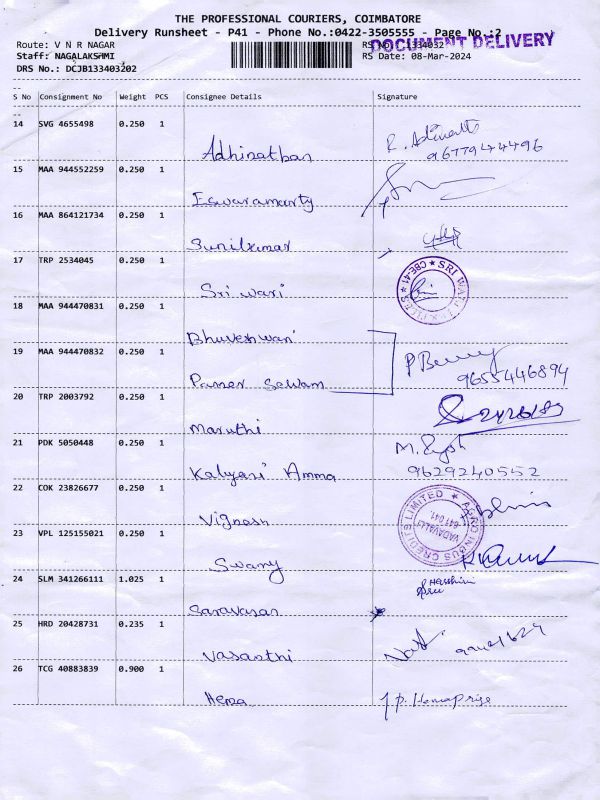 THE PROFESSIONAL COURIERS, COIMBATORE
Delivery Runsheet - P41 - Phone No.:0422-3505555 - Page No.:2
DOCUMENT DELIVERY
Route: V N R NAGAR
Staff: NAGALAKSHMI
RS Date: 08-Mar-2024
DRS No.: DCJB133403202
S No Consignment No Weight PCS Consignee Details Signature
14 SVG 4655498 0.250 1
Adhinathan
9677944496
15 MAA 944552259 0.250 1
Eswaramoorty
16 MAA 864121734 0.250 1
Sunilkumar
17 TRP 2534045 0.250 1
Sri wari
CBE-41 * SRI
18 MAA 944470831 0.250 1
Bhuveshwari
19 MAA 944470832 0.250 1
Panner Selvam
9655446894
20 TRP 2003792 0.250 1
Maruthi
21 PDK 5050448 0.250 1
Kalyani Amma
9629240552
22 COK 23826677 0.250 1
Vignesh
AGRO INDUS CREDITS LIMITED
VADAVALLI
641 041.
23 VPL 125155021 0.250 1
Swamy
24 SLM 341266111 1.025 1
Saravanan
25 HRD 20428731 0.235 1
Vasanthi
26 TCG 40883839 0.900 1
Hema
J.P. Hemapriya